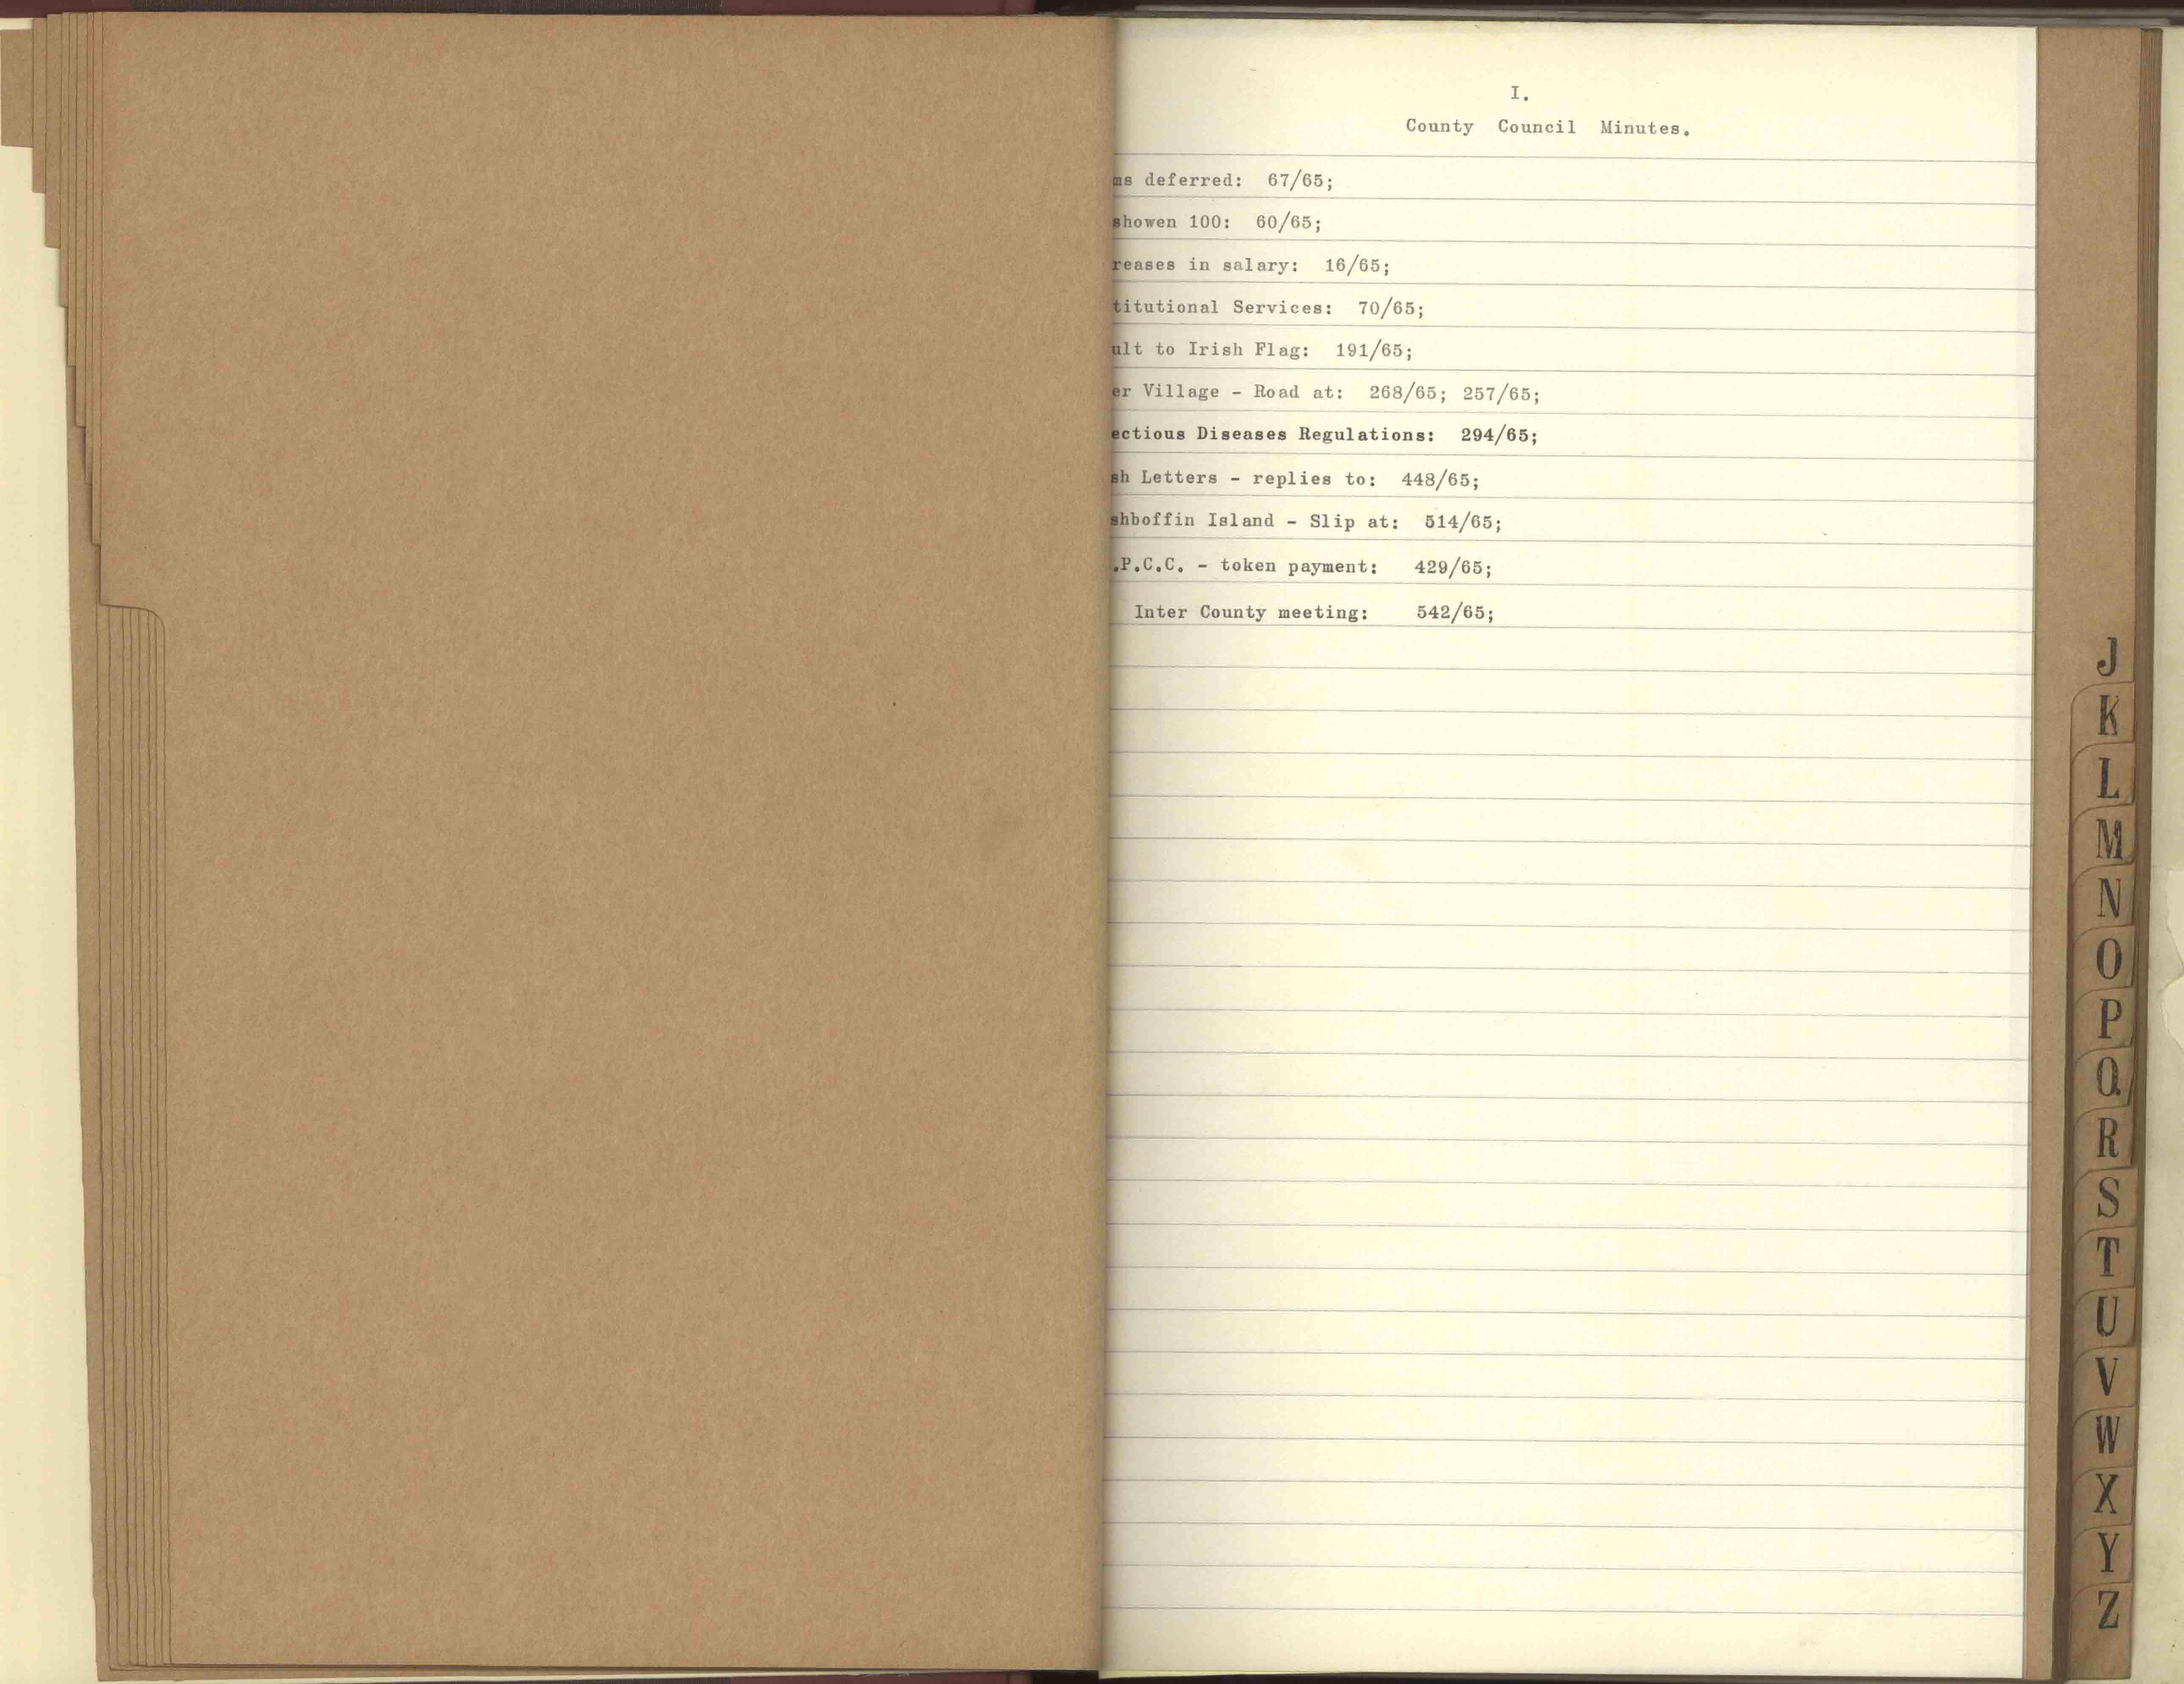 I.
County Council Minutes.
ms deferred: 67/65;
showen 100: 60/65;
reases in salary: 16/65;
titutional Services: 70/65;
ult to Irish Flag: 191/65;
er Village - Road at: 268/65; 257/65;
ectious Diseases Regulations: 294/65;
sh Letters - replies to: 448/65;
shboffin Island - Slip at: 514/65;
.P.C.C. - token payment: 429/65;
Inter County meeting: 542/65;
J
K
L
M
N
O
P
Q
R
S
T
U
V
W
X
Y
Z